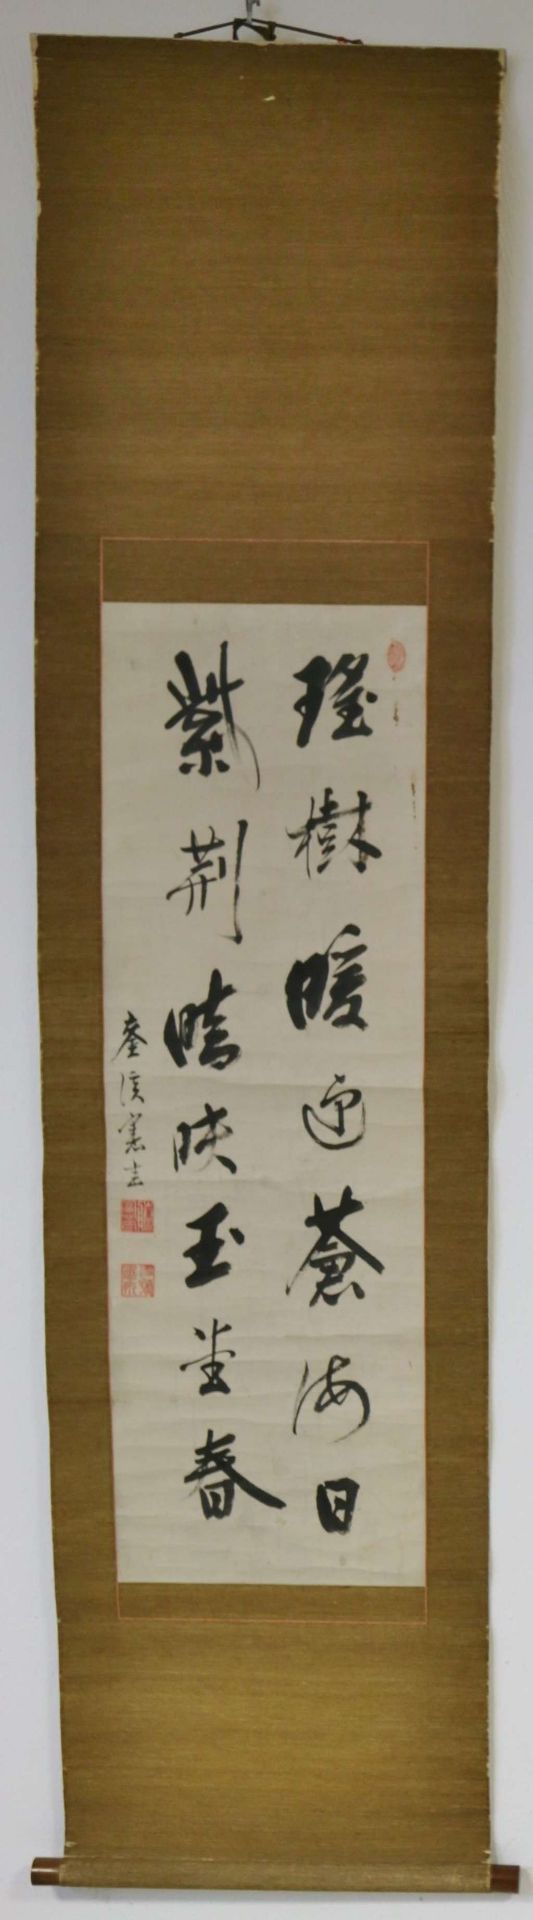 瑤樹暖迎蒼海日
紫荊晴映玉堂春
奎溪憲章